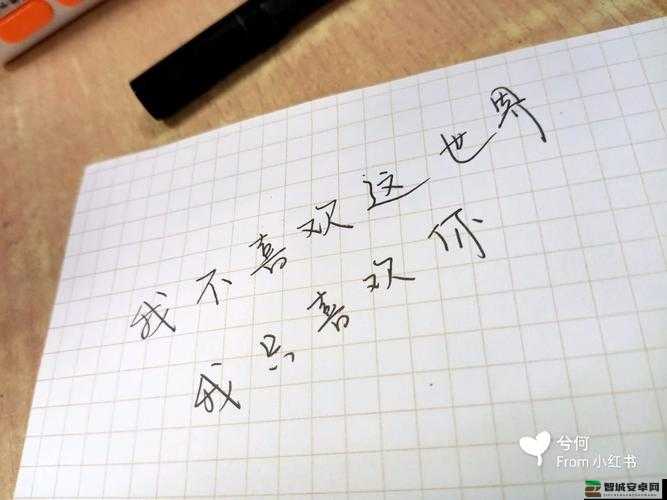 我不喜欢这世界
我只喜欢你
兮何
From 小红书
智城安卓网